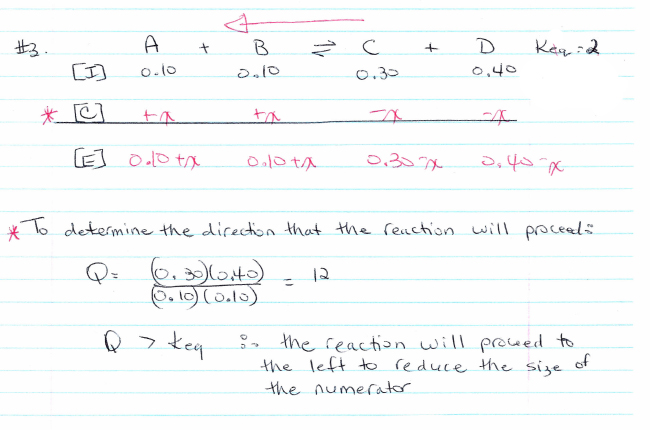 #3. A + B ⇌ C + D Keq = 2
[I] 0.10 0.10 0.30 0.40
* [C] +x +x -x -x
[E] 0.10+x 0.10+x 0.30-x 0.40-x
* To determine the direction that the reaction will proceed:
Q = (0.30)(0.40) / (0.10)(0.10) = 12
Q > Keq ∴ the reaction will proceed to
the left to reduce the size of
the numerator